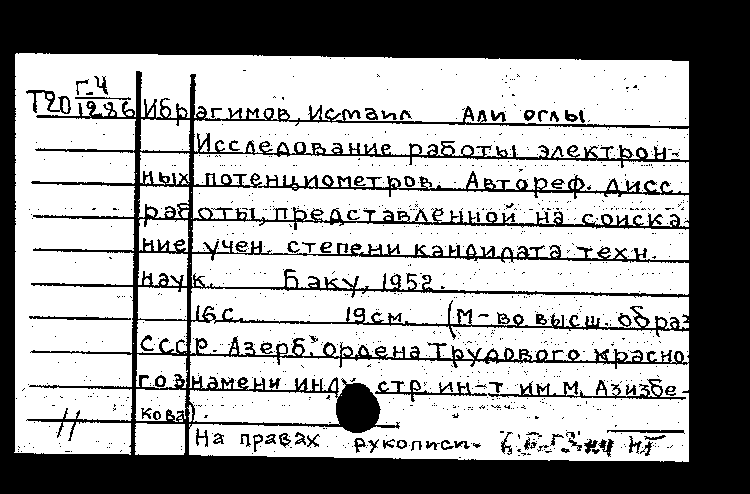 Т20 Г-4/1286 Ибрагимов, Исмаил Али оглы
Исследование работы электрон-
ных потенциометров. Автореф. дисс.
работы, представленной на соиска-
ние учен. степени кандидата техн.
наук. Баку, 1952.
16 с. 19 см. (М-во высш. образ
СССР. Азерб. ордена Трудового красно
гознамени инду стр. ин-т им. М. Азизбе-
кова).
11
На правах рукописи-